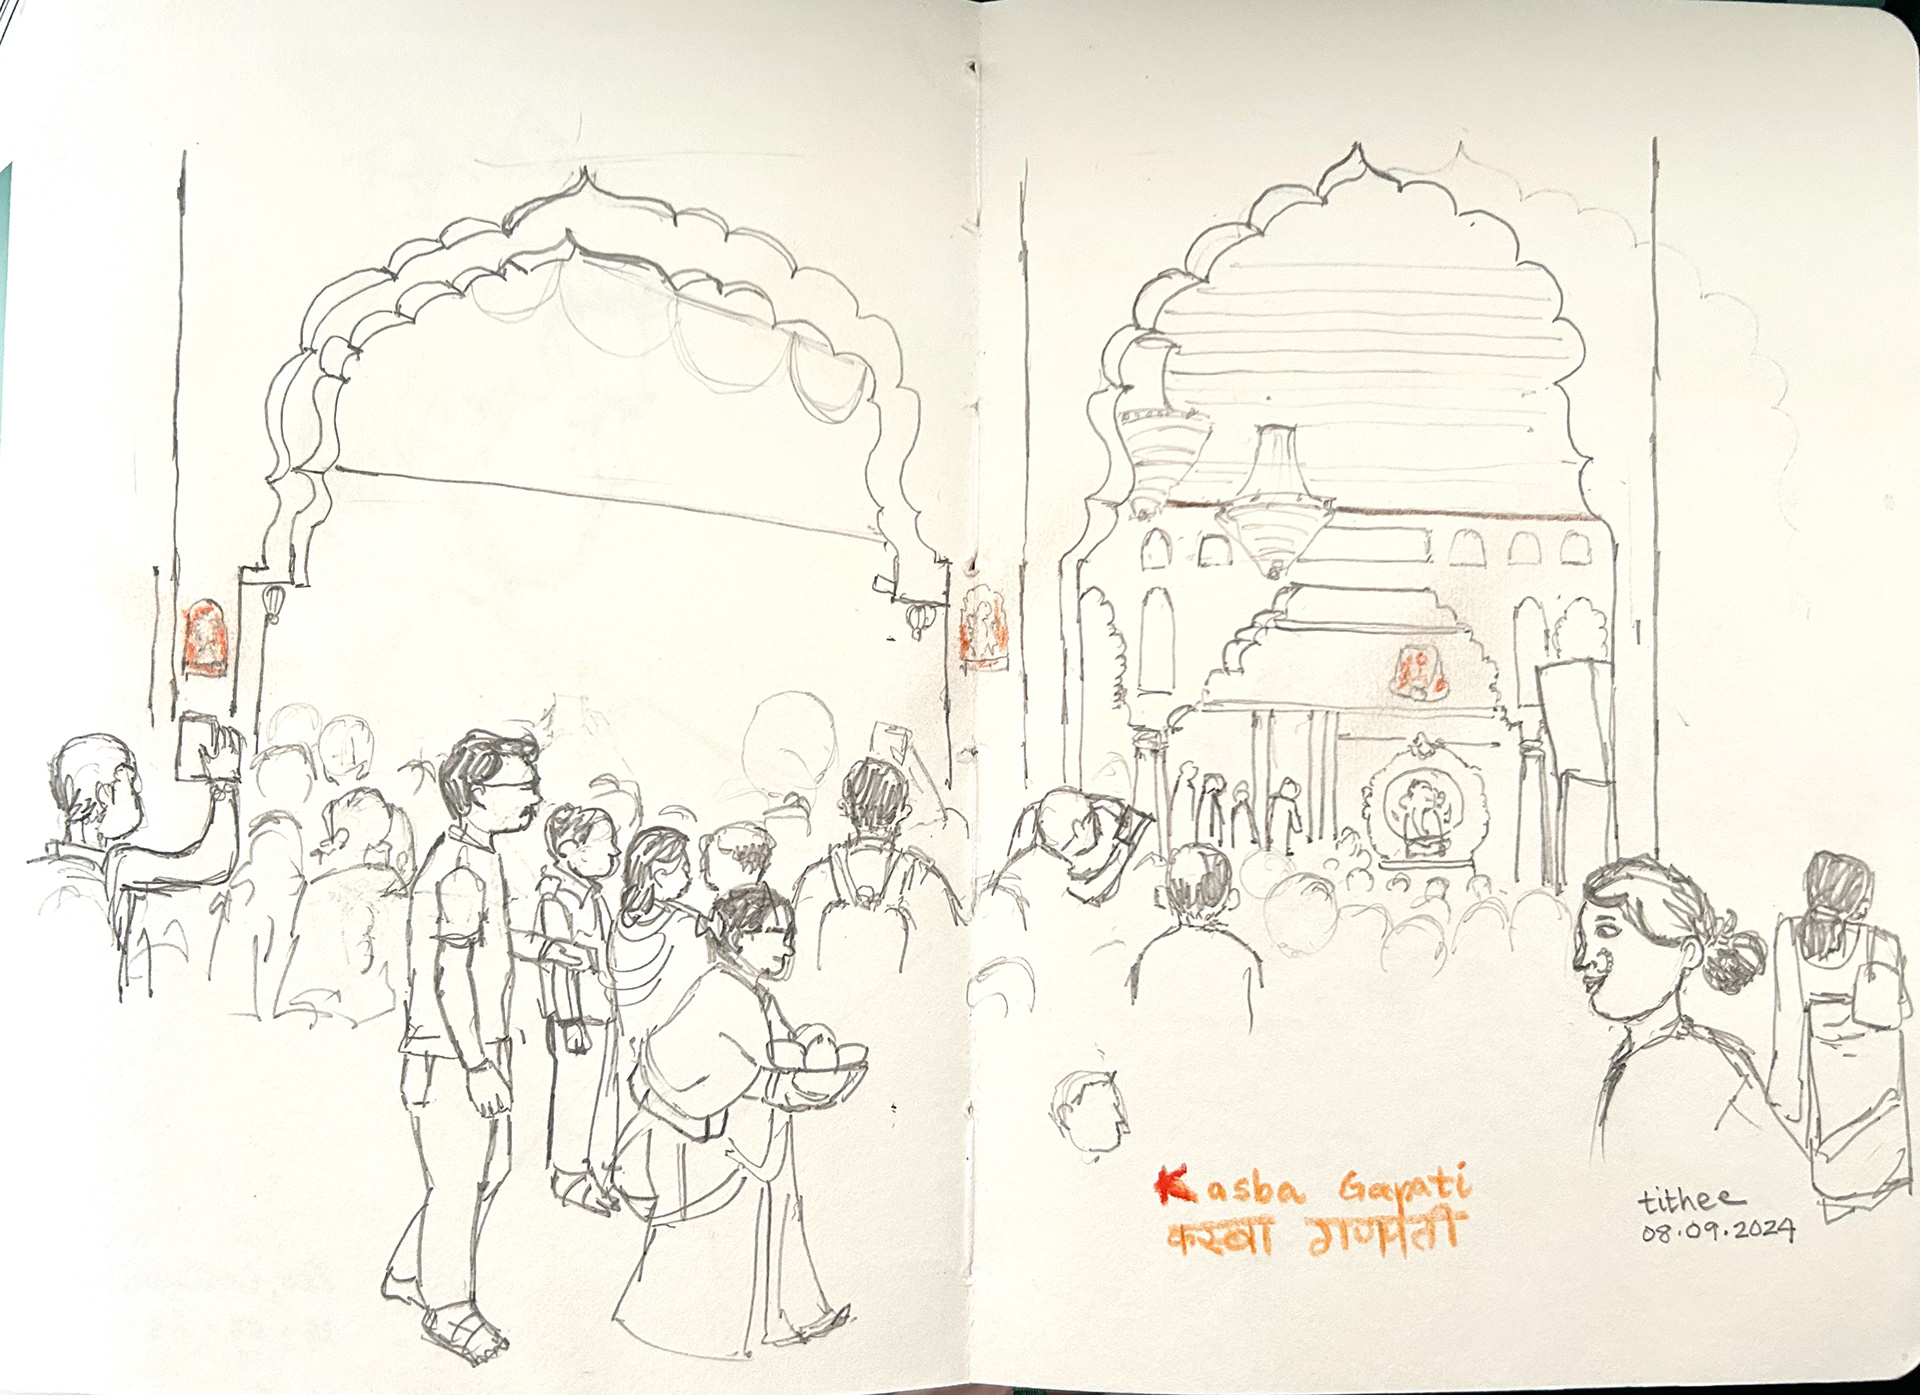 Kasba Ganpati
कस्बा गणपती
tithee
08.09.2024